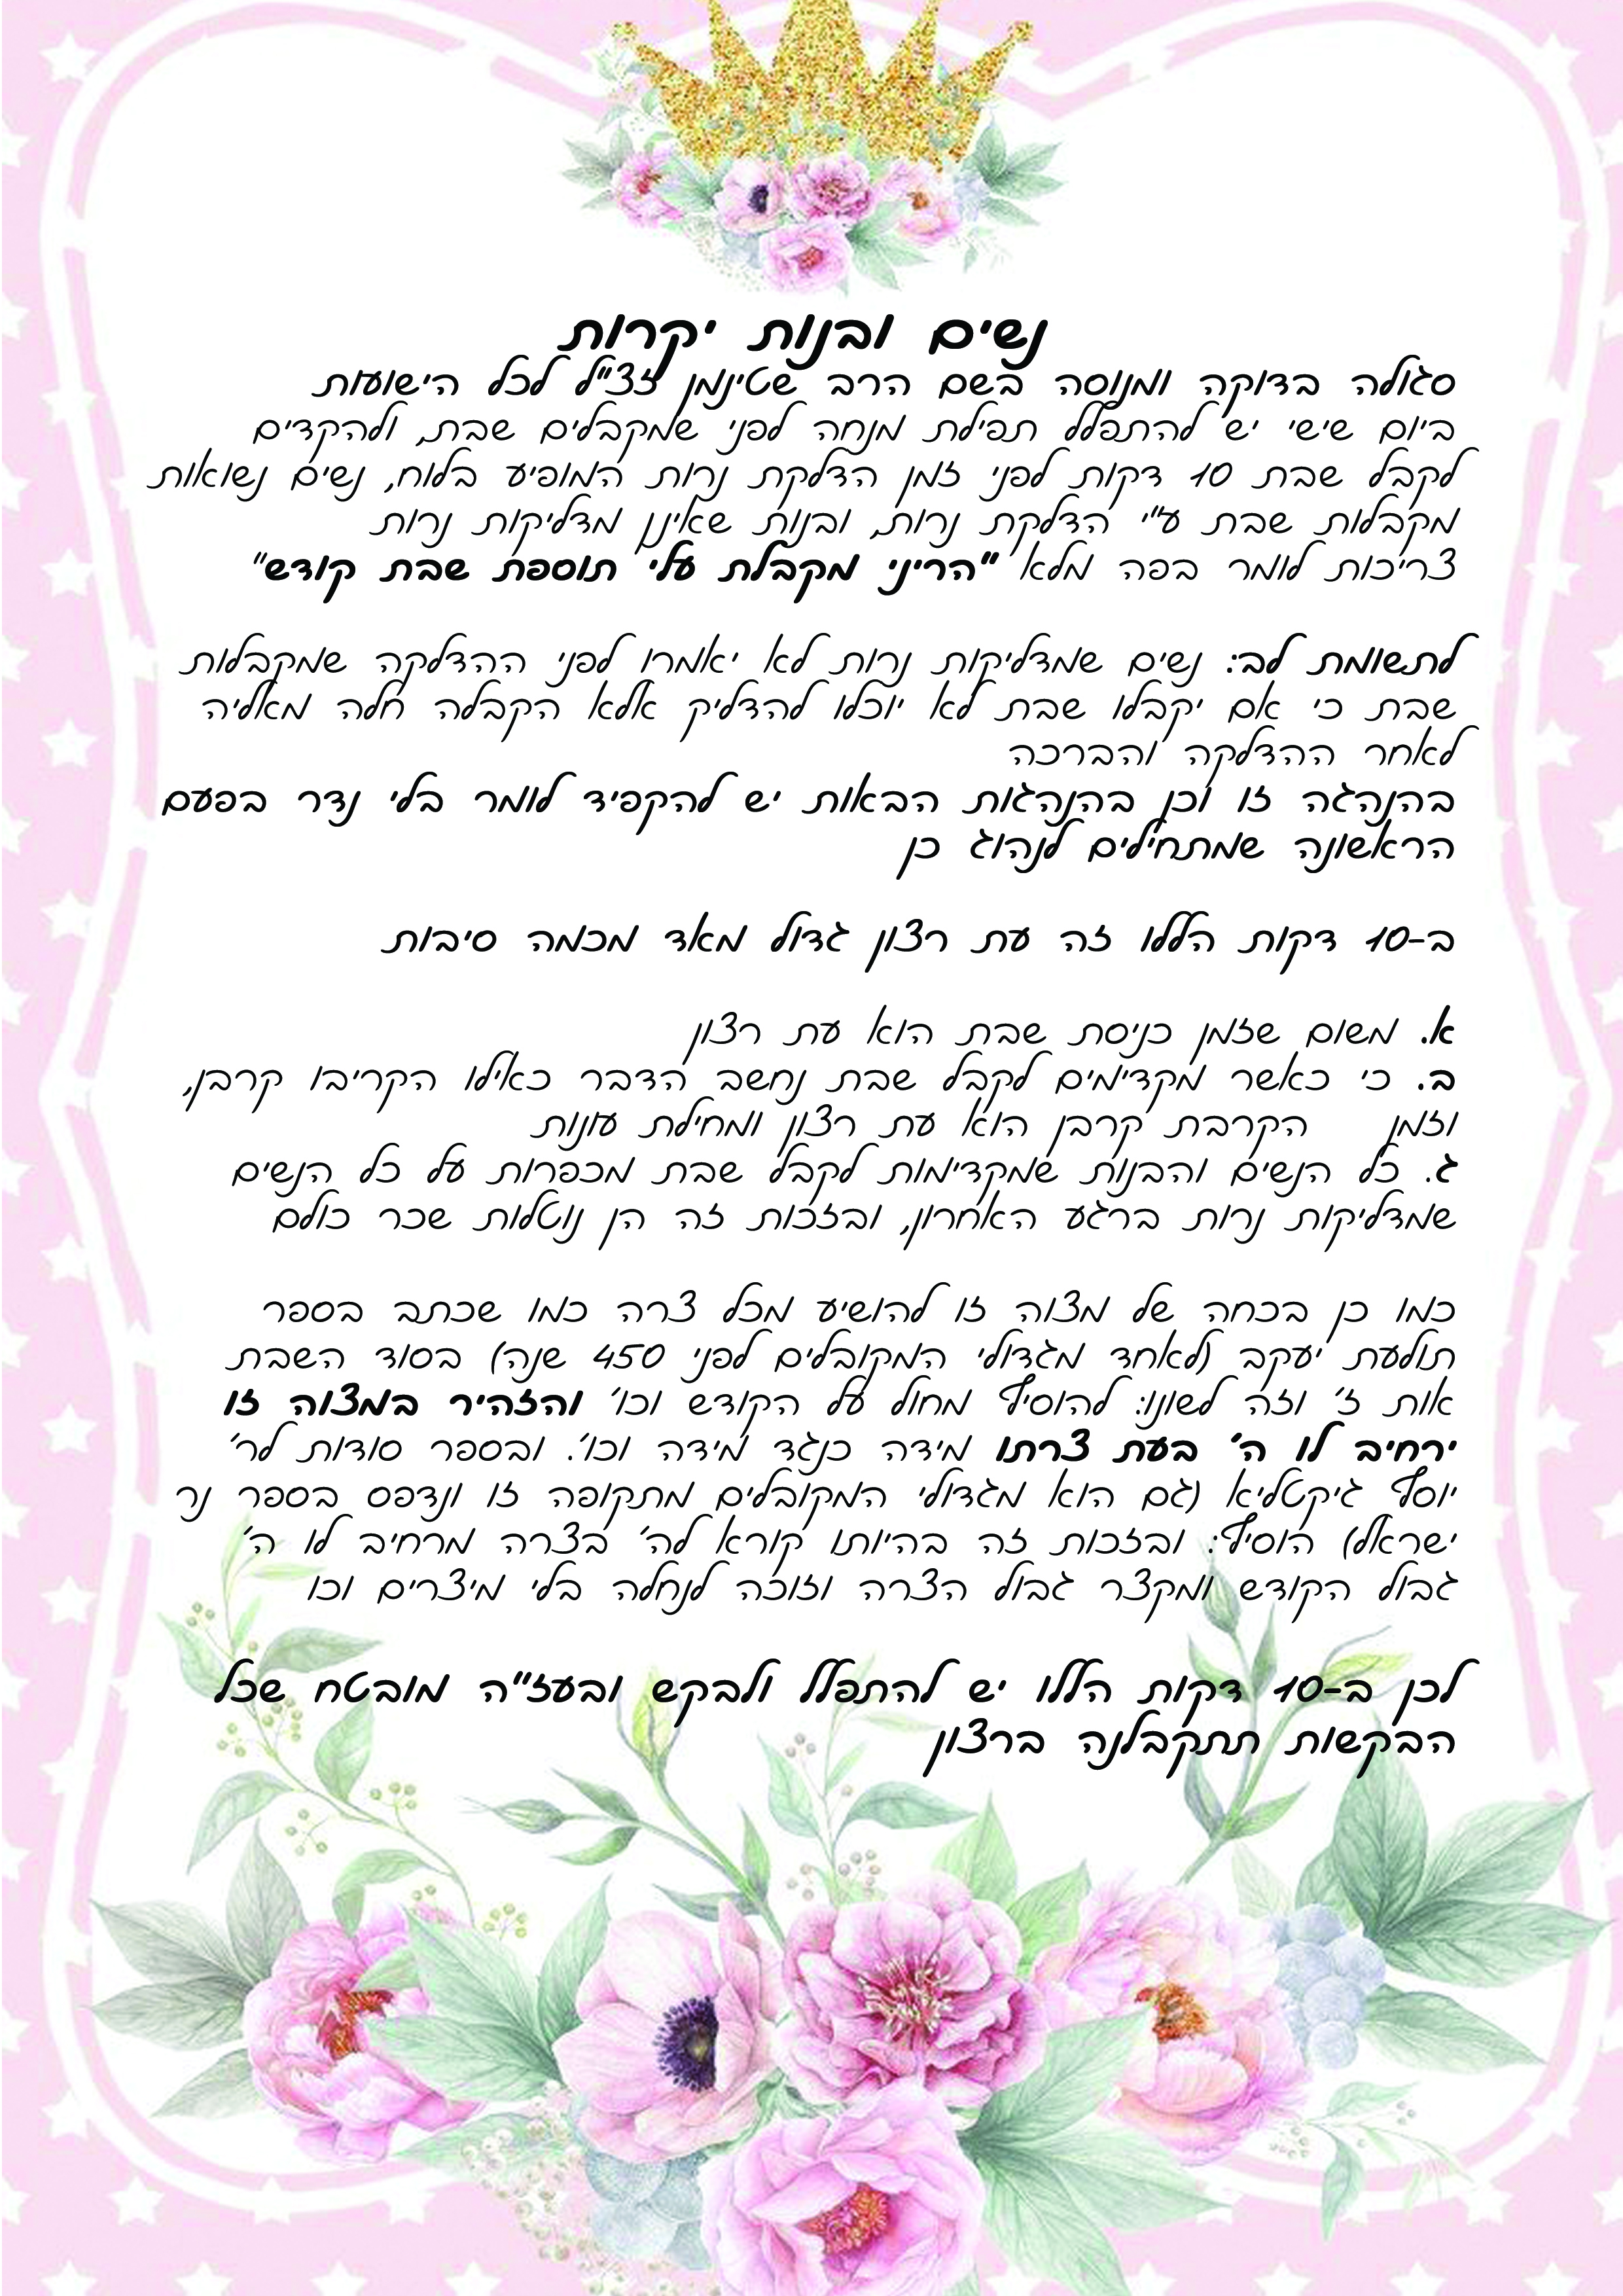 נשים ובנות יקרות
סגולה בדוקה ומנוסה בשם הרב שטינמן זצ"ל לכל הישועות
ביום שישי יש להתפלל תפילת מנחה לפני שמקבלים שבת, ולהקדים
לקבל שבת 10 דקות לפני זמן הדלקת נרות המופיע בלוח, נשים נשואות
מקבלות שבת ע"י הדלקת נרות, ובנות שאינן מדליקות נרות
צריכות לומר בפה מלא "הריני מקבלת עלי תוספת שבת קודש"
לתשומת לב: נשים שמדליקות נרות לא יאמרו לפני ההדלקה שמקבלות
שבת כי אם יקבלו שבת לא יוכלו להדליק אלא הקבלה חלה מאליה
לאחר ההדלקה והברכה
בהנהגה זו וכן בהנהגות הבאות יש להקפיד לומר בלי נדר בפעם
הראשונה שמתחילים לנהוג כן
ב-10 דקות הללו זה עת רצון גדול מאד מכמה סיבות
א. משום שזמן כניסת שבת הוא עת רצון
ב. כי כאשר מקדימים לקבל שבת נחשב הדבר כאילו הקריבו קרבן,
וזמן הקרבת קרבן הוא עת רצון ומחילת עונות
ג. כל הנשים והבנות שמקדימות לקבל שבת מכפרות על כל הנשים
שמדליקות נרות ברגע האחרון, ובזכות זה הן נוטלות שכר כולם
כמו כן בכחה של מצוה זו להושיע מכל צרה כמו שכתב בספר
תולעת יעקב (לאחד מגדולי המקובלים לפני 450 שנה) בסוד השבת
אות ז' וזה לשונו: להוסיף מחול על הקודש וכו' והזהיר במצוה זו
ירחיב לו ה' בעת צרתו מידה כנגד מידה וכו'. ובספר סודות לר'
יוסף גיקטליא (גם הוא מגדולי המקובלים מתקופה זו ונדפס בספר נר
ישראל) הוסיף: ובזכות זה בהיותו קורא לה' בצרה מרחיב לו ה'
גבול הקודש ומקצר גבול הצרה וזוכה לנחלה בלי מיצרים וכו
לכן ב-10 דקות הללו יש להתפלל ולבקש ובעז"ה מובטח שכל
הבקשות תתקבלנה ברצון